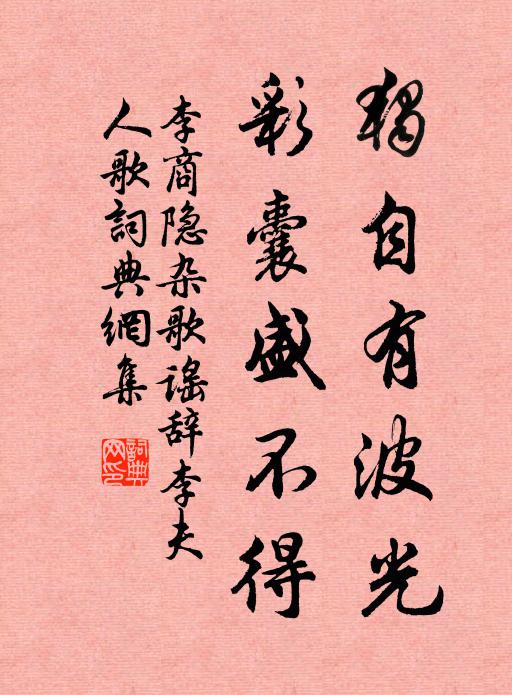 獨自有波光
彩囊盛不得
李商隐杂歌谣辞李夫
人歌詞典網集
詞典
网印